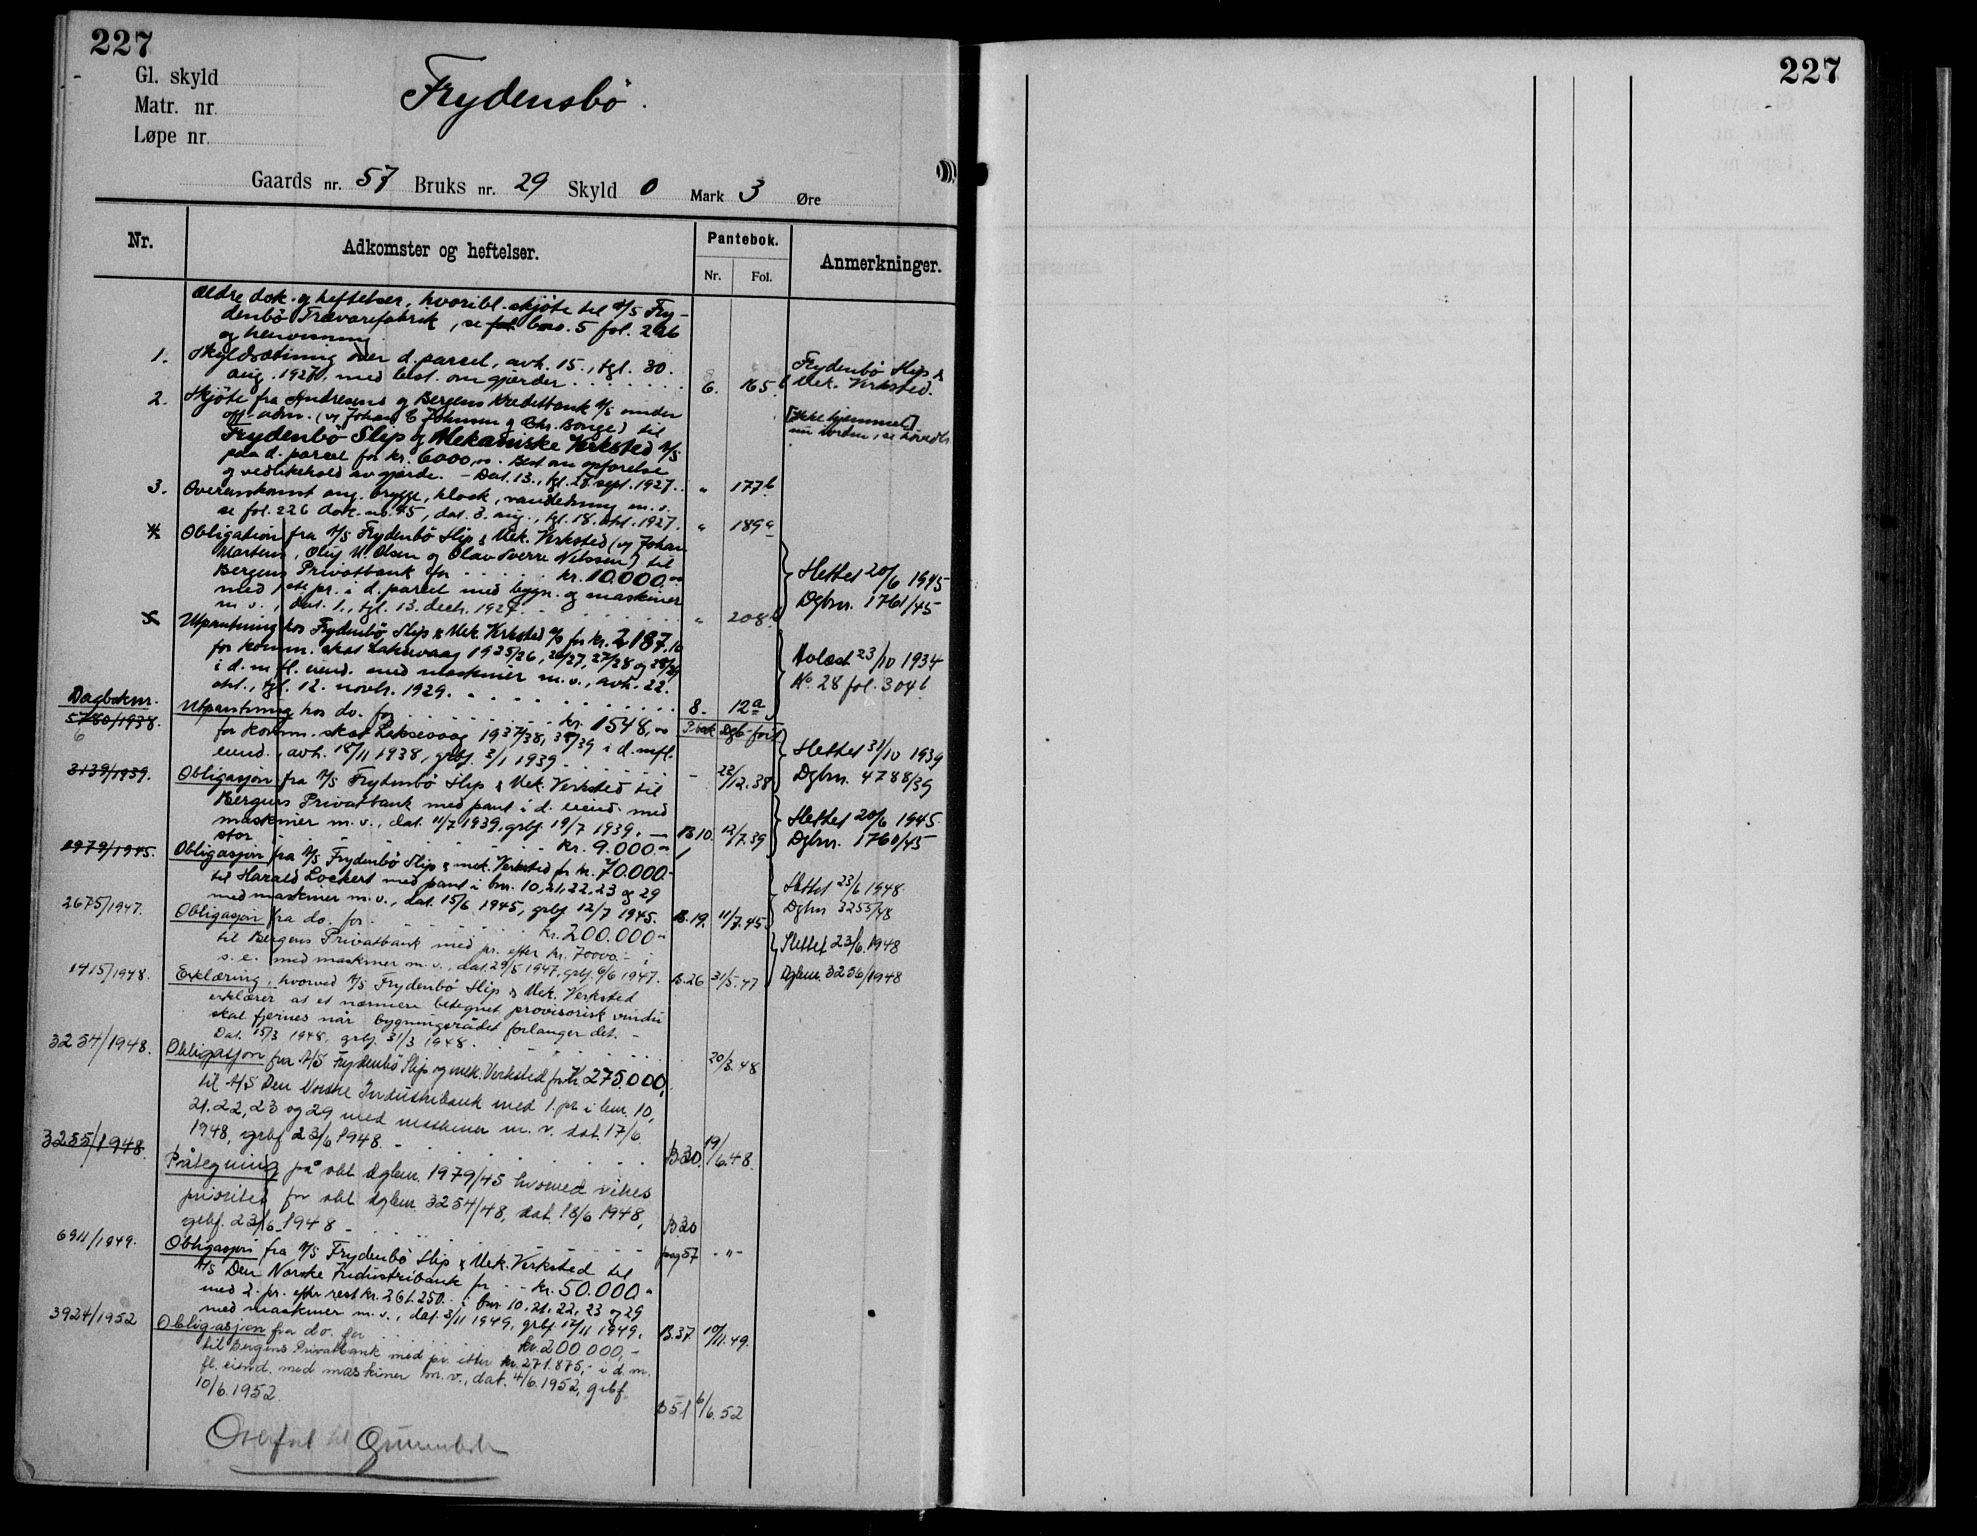 227
Gl. skyld
Matr. nr.
Løpe nr.
Frydensbö.
Gaards nr. 57 Bruks nr. 29 Skyld 0 Mark 3 Øre
Nr.
Adkomster og heftelser.
Pantebok.
Nr.
Fol.
Anmerkninger.
Ældre dok. og heftelser, hvoribl. skjöte til A/S Fry-
denbö Trævarefabrik, se bno. 5 fol. 226
og henvisning.
1. Skyldsætning over d. parcel, avh. 15., tgl. 30.
aug. 1927, med best. om gjerder . . . . . . . 6. 165 b
Frydenbö Slip &
Mek. Verksted.
2. Skjöte fra Andresens og Bergens Kreditbank A/S under
off. adm. (v/ Johan C Johnsen & Chr. Bonge) til
Frydenbö Slip og Mekaniske Verksted A/S
paa d. parcel for kr. 6000,00. Best om opförelse
og vedlikehold av gjerde. - Dat. 13., tgl. 28. sept. 1927. " 177 b
[Ikke hjemmel]
3. Overenskomst ang. brygge, klosk, vandledning m. v.
se fol. 226 dok. no. 45, dat. 3. aug., tgl. 18. okt. 1927. " 189 a
4. Obligation fra A/S Frydenbö Slip & Mek. Verksted (v/ Johan
Martens, Oluf W. Olsen og Olav Sverre Nilssen) til
Bergens Privatbank for . . . . . kr. 10.000,00
med 1ste pr. i d. parcel med bygn. og maskiner
m. v., dat. 1., tgl. 13. decb. 1927. . . . . . . " 208 b
Slettet 20/6 1945
Dgbnr. 1761/45
5. Utpantning hos Frydenbö Slip & Mek. Verksted A/S for kr. 2187,10
for komm. skat Laksevaag 1925/26, 26/27, 27/28 og 28/29
i d. m. fl. eiend. med maskiner m. v., avh. 22.
okt., tgl. 12. novb. 1929. . . . . . . . . 8. 12 a
Avlæst 23/10 1934
No. 28 fol. 304 b
Dagboknr.
5780/1938.
6
Utpantning hos do. for . . . . . kr. 1548,00
for komm. skat Laksevaag 1937/38, 38/39 i d. mfl.
eiend., avh. 18/11 1938, grbf. 2/1 1939 . . . . . . - 22/12.38
P.bok Dgb-ført
Slettet 31/10 1939
Dgbnr. 4788/39
3139/1939. Obligasjon fra A/S Frydenbö Slip & Mek. Verksted til
Bergens Privatbank med pant i d. eiend. med
maskiner m. v., dat. 11/7 1939, grbf. 19/7 1939. —
stor . . . . . . kr. 9.000.- B 10 12/7.39
Slettet 20/6 1945.
Dgbnr. 1760/45
1979/1945. Obligasjon fra A/S Frydenbö Slip & mek. Verksted for kr. 70.000.-
til Harald Lockert med pant i bnr. 10, 21, 22, 23 og 29
med maskiner m. v., dat. 15/6 1945, grbf. 12/7 1945. B. 19. 11/7.45
Slettet 23/6 1948
Dgbnr 3255/48
2675/1947. Obligasjon fra do. for . . . . . kr. 200.000.-
til Bergens Privatbank med pr. efter kr. 70000.- i
s. e. med maskiner m. v., dat. 29/5 1947, grbf. 6/6 1947. B. 26 31/5.47
Slettet 23/6.1948
Dgbnr. 3256/1948
1415/1948. Erklæring, hvorved A/S Frydenbö Slip & Mek. Verksted
erklærer at et nærmere betegnet provisorisk vindu
skal fjernes når bygningsrådet forlanger det. -
Dat. 15/3 1948, grbf. 31/3 1948. . . . . . . 20/3.48
3254/1948. Obligasjon fra A/S Frydenbö Slip og mek. Verksted for kr 275.000,
til A/S Den Norske Industribank med 1. pr. i bnr. 10,
21, 22, 23 og 29 med maskiner m. v. dat. 17/6
1948, grbf 23/6 1948. - . . . . . . . B 30. 19/6.48.
3255/1948. Påtegning på obl dgbnr. 1979/45 hvorved vikes
prioritet for obl dgbnr. 3254/48, dat. 18/6 1948,
grbf. 23/6 1948 - . . . . . . . B 30
pag 57 - " -
6911/1949. Obligasjon fra A/S Frydenbö Slip & Mek. Verksted til
A/S Den Norske Industribank for . . - kr. 50.000.-
med 2. pr. efter rest kr. 261.250.- i bnr. 10, 21, 22, 23 og 29
med maskiner m. v., dat. 3/11 1949, grbf 17/11 1949. B. 37 10/11.49.
3924/1952 Obligasjon fra do. for . . . . . kr. 200.000,-
til Bergens Privatbank med pr. etter kr. 271.875,- i d. m.
fl. eiend. med maskiner m. v., dat. 4/6.1952, grbf.
10/6.1952. B 51 6/6.52
Overført til Grunnboken
227